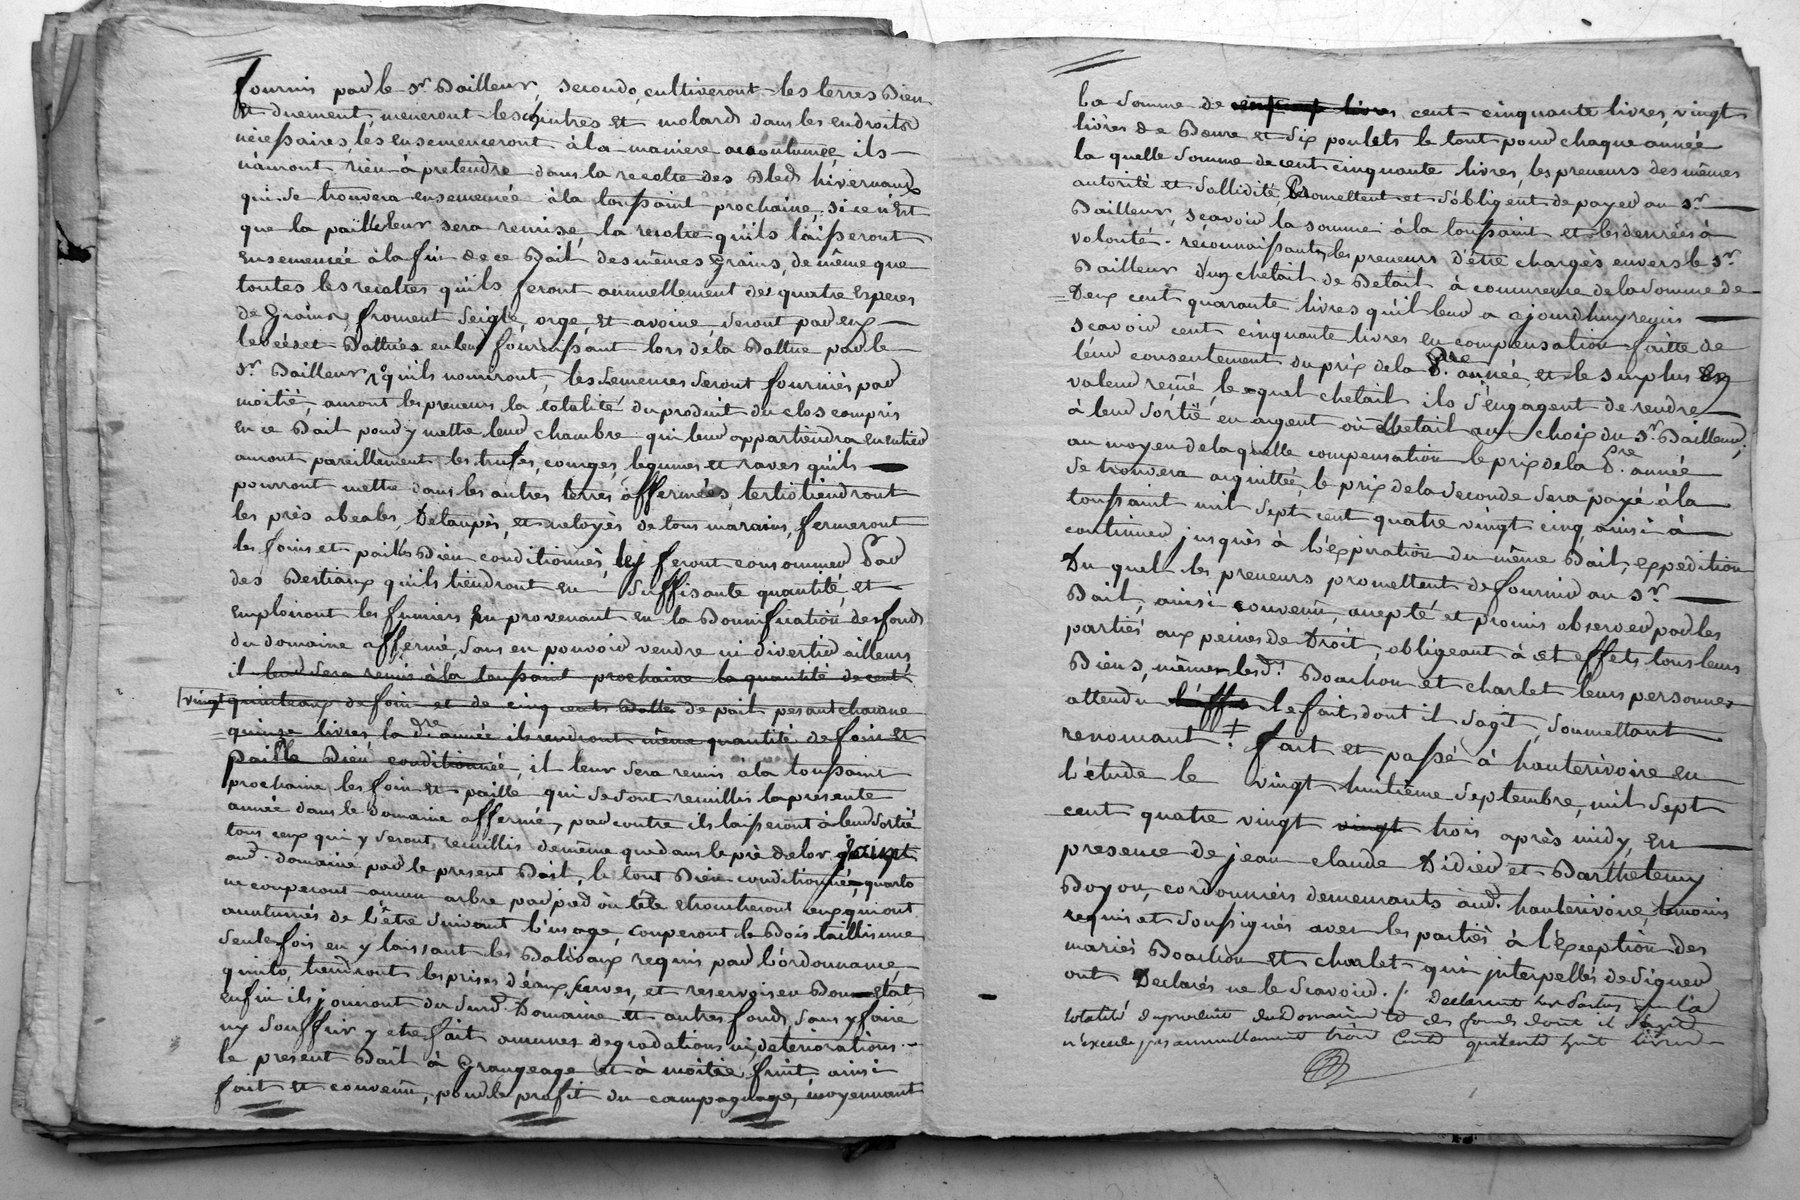 fournis par le Sr Bailleur, secundo, cultiveront les terres Bien
et duement, meneront les chintres et molards dans les endroits
nécessaires les ensemenceront à la maniere accoutumée, ils
n'auront rien à pretendre dans la recolte des Bleds hivernaux
qui se trouvera ensemencée à la toussaint prochaine, si ce n'est
que la paille leur sera remise, la recolte qu'ils laisseront
ensemencée à la fin de ce Bail des mêmes grains, de même que
toutes les recoltes qu'ils feront annuellement des quatre especes
de Grains, froment seigle, orge, et avoine, seront par eux
levées et Battues en leur fournissant lors de la Battue par le
Sr Bailleur qu'ils nouriront, les semences seront fournies par
moitié, auront les preneurs la totalité du produit du clos compris
en ce Bail pour y mettre leur chambre qui leur appartiendra en entier
auront pareillement les trufes, courges, legumes et raves qu'ils
pourront mettre dans les autres terres affermées, tertio tiendront
les près abealés, Detaupés, et netoyés de tous marains, fermeront
les foins et pailles Bien conditionnés, les feront consommer Par
des Bestiaux qu'ils tiendront en suffisante quantité, et
emploiront les fumiers en provenant en la Bonnification des fonds
du domaine affermé, sans en pouvoir vendre ni divertir ailleurs,
il leur sera remis à la toussaint prochaine la quantité de cent
vingt quintaux de foin et de cinq cents Bottes de paile pesant chacune
quinze livres la dre année ils rendront même quantité de foin et
Paille Bien conditionnée, il leur sera remis à la toussaint
prochaine les foin et paille qui se sont receuillis la presente
année dans le domaine affermé, par contre ils laisseront à leur sortie
tous ceux qui y seront receuillis de même que dans le pré delor joint
aud. domaine par le present Bail, le tout Bien conditionné, quarto
ne couperont aucun arbre par pied ou tête etroncheront ceux qui ont
accutumés de l'être suivant l'usage, couperont le Bois taillis une
seule fois en y laissant les Balivaux requis par l'ordonnance,
quinto, tiendront les prises d'eaux, serves, et reservoirs en Bon Etat
enfin ils jouiront du surd. Domaine et autres fonds, sans y faire
ny souffrir y etre fait aucunes degradations ni deteriorations
le present Bail à Grangeage et à moitié fruit ainsi
fait et convenu, pour le profit du campagnage, moyennant
la somme de cent cinquante livres, vingt
livres de Beure, et six poulets le tout pour chaque année
la quelle somme de cent cinquante livres, les preneurs des mêmes
autorité et sollidité, Promettent et s'obligent de payer au Sr
Bailleur, sçavoir la somme à la toussaint et les denrées à
volonté. reconnaissants les preneurs d'être chargés envers le Sr
Bailleur d'un chetail de Betail à commune de la somme de
Deux cent quarante livres qu'il leur a ajourdhuy remis
scavoir cent cinquante livres en compensation faitte de
leur consentement du prix de la Pre année, et le surplus en
valeur remé, lequel chetail ils s'engagent de rendre
à leur sortie en argent où chetail au choix du Sr Bailleur,
au moyen de la quelle compensation le prix de la Pre année
se trouvera acquittée, le prix de la seconde sera payé à la
toussaint mil sept cent quatre vingt cinq, ainsi à
continuer jusqu'es à l'expiration du même Bail, expedition
Du quel les preneurs promettent de fournir au Sr
Bail, ainsi convenu, accepté et promis observer par les
parties aux peines de Droit, obligeant à cet effets tous leurs
Biens, même lesd. Boachon et charlet leurs personnes
attendu le fait dont il s'agit, soumettant
renonçant ‡ fait et passé à hauterivoire en
l'étude le vingt huitième septembre, mil sept
cent quatre vingt vingt trois après midy, en
presence de jean claude Didier et Barthelemy
Boyou, cordonniers demeurants aud. hauterivoire, temoins
requis et soussignés avec les parties à l'exception des
mariés Boachon et charlet qui interpellés de signer
ont Declarés ne le scavoir. / declarent les parties que la
totalité du produit du Domaine et des fonds dont il s'agit
n'excede pas annuellement trois Cents quarente huit livres